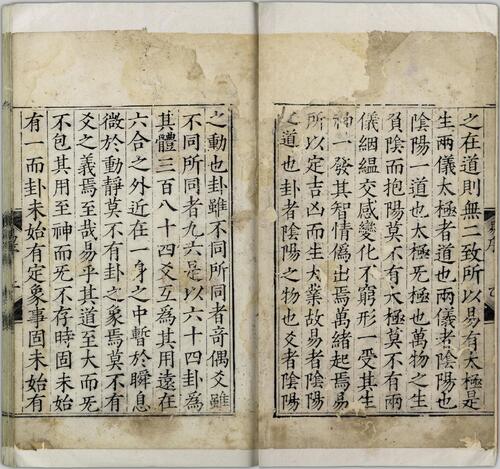 之在道則無二致所以易有太極是
生兩儀太極者道也兩儀者陰陽也
陰陽一道也太極无極也萬物之生
負陰而抱陽莫不有太極莫不有兩
儀絪縕交感變化不窮形一受其生
神一發其智情僞出焉萬緒起焉易
所以定吉凶而生大業故易者陰陽
之道也卦者陰陽之物也爻者陰陽
之動也卦雖不同所同者奇偶爻雖
不同所同者九六是以六十四卦為
其體三百八十四爻互為其用遠在
六合之外近在一身之中暫於瞬息
微於動靜莫不有卦之象焉莫不有
爻之義焉至哉易乎其道至大而无
不包其用至神而无不存時固未始
有一而卦未始有定象事固未始有